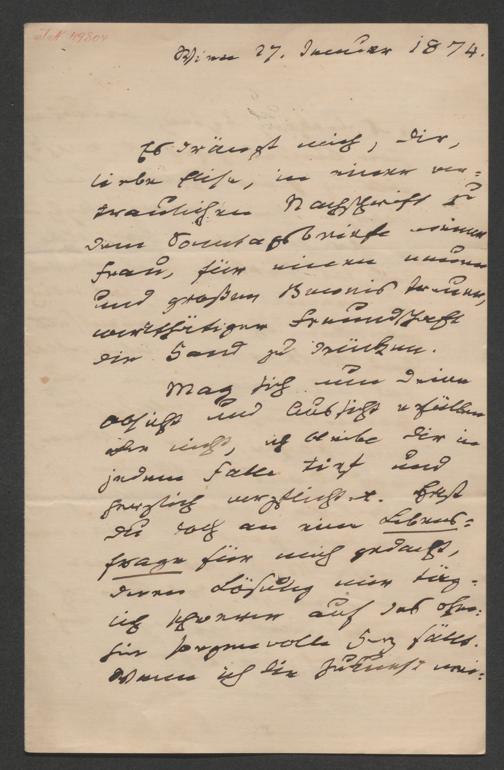 I.N. 49804
Wien 27. Januar 1874.
Es drängt mich, dir,
liebe Elise, in einer ver=
traulichen Nachschrift zu
dem Sonntagsbriefe meiner
Frau, für einen neuen
und großen Beweis treuer,
werkthätiger Freundschaft
die Hand zu drücken.
Mag sich nun deine
Absicht und Aussicht erfüllen
oder nicht, ich bleibe dir in
jedem Falle tief und
herzlich verpflichtet. Hast
du doch an eine Lebens=
frage für mich gedacht,
deren Lösung mir täg=
lich schwerer auf das ohne=
hin sorgenvolle Herz fällt.
Wenn ich die Zukunft mei=